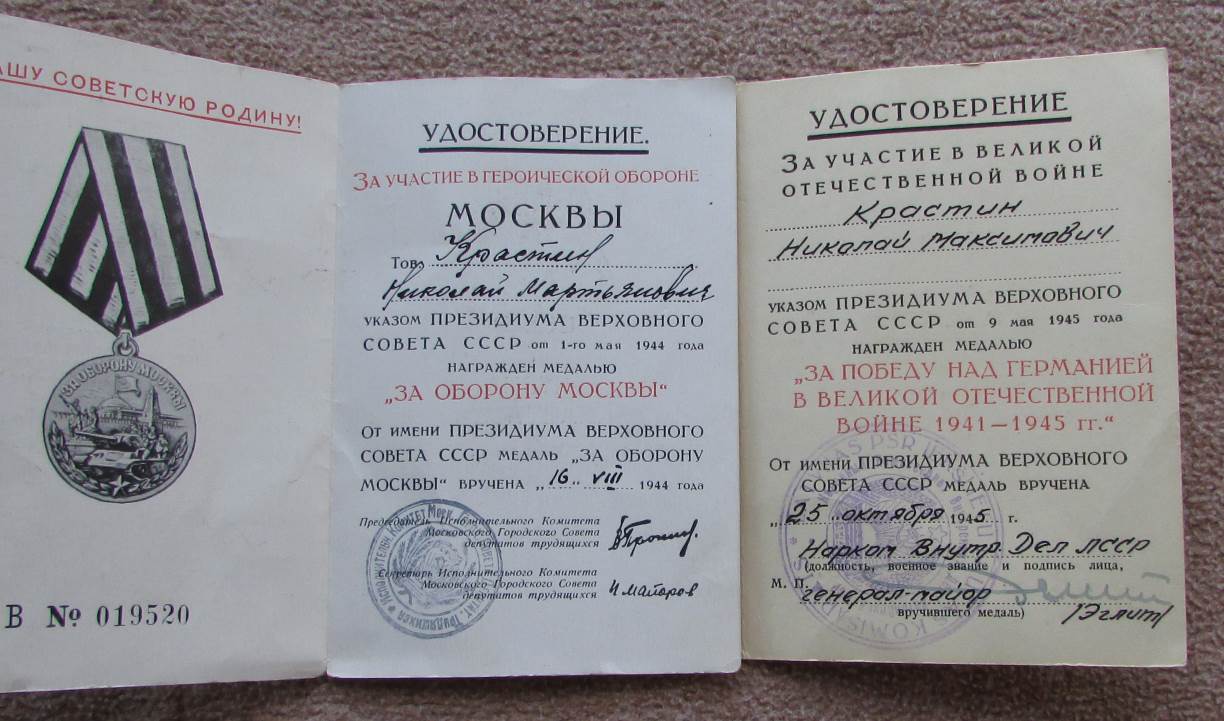 АШУ СОВЕТСКУЮ РОДИНУ!
ЗА ОБОРОНУ МОСКВЫ
В № 019520
УДОСТОВЕРЕНИЕ.
ЗА УЧАСТИЕ В ГЕРОИЧЕСКОЙ ОБОРОНЕ
МОСКВЫ
Тов. Крастин
Николай Мартьянович
УКАЗОМ ПРЕЗИДИУМА ВЕРХОВНОГО
СОВЕТА СССР от 1-го мая 1944 года
НАГРАЖДЕН МЕДАЛЬЮ
„ЗА ОБОРОНУ МОСКВЫ“
От имени ПРЕЗИДИУМА ВЕРХОВНОГО
СОВЕТА СССР МЕДАЛЬ „ЗА ОБОРОНУ
МОСКВЫ“ ВРУЧЕНА „16“ VIII 1944 года
Председатель Исполнительного Комитета
Московского Городского Совета
депутатов трудящихся
Секретарь Исполнительного Комитета
Московского Городского Совета
депутатов трудящихся
Н Майоров
УДОСТОВЕРЕНИЕ
ЗА УЧАСТИЕ В ВЕЛИКОЙ
ОТЕЧЕСТВЕННОЙ ВОЙНЕ
Крастин
Николай Максимович
УКАЗОМ ПРЕЗИДИУМА ВЕРХОВНОГО
СОВЕТА СССР от 9 мая 1945 года
НАГРАЖДЕН МЕДАЛЬЮ
„ЗА ПОБЕДУ НАД ГЕРМАНИЕЙ
В ВЕЛИКОЙ ОТЕЧЕСТВЕННОЙ
ВОЙНЕ 1941—1945 гг.“
От имени ПРЕЗИДИУМА ВЕРХОВНОГО
СОВЕТА СССР МЕДАЛЬ ВРУЧЕНА
„25“ октября 1945 г.
Нарком Внутр. Дел ЛССР
(должность, военное звание и подпись лица,
М. П. генерал-майор
вручившего медаль) /Эглит/